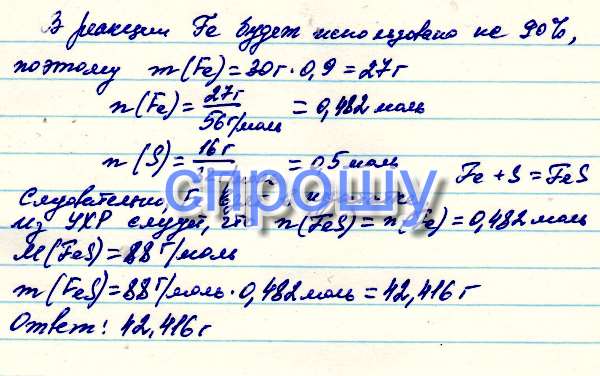 В реакции Fe будет использовано на 90%,
поэтому m(Fe) = 30г · 0,9 = 27г
n(Fe) = 27г / 56г/моль = 0,482 моль
n(S) = 16г / = 0,5 моль
Fe + S = FeS
Следовательно,
из УХР следует, что n(FeS) = n(Fe) = 0,482 моль
M(FeS) = 88 г/моль
m(FeS) = 88 г/моль · 0,482 моль = 42,416 г
Ответ: 42,416 г
спрошу